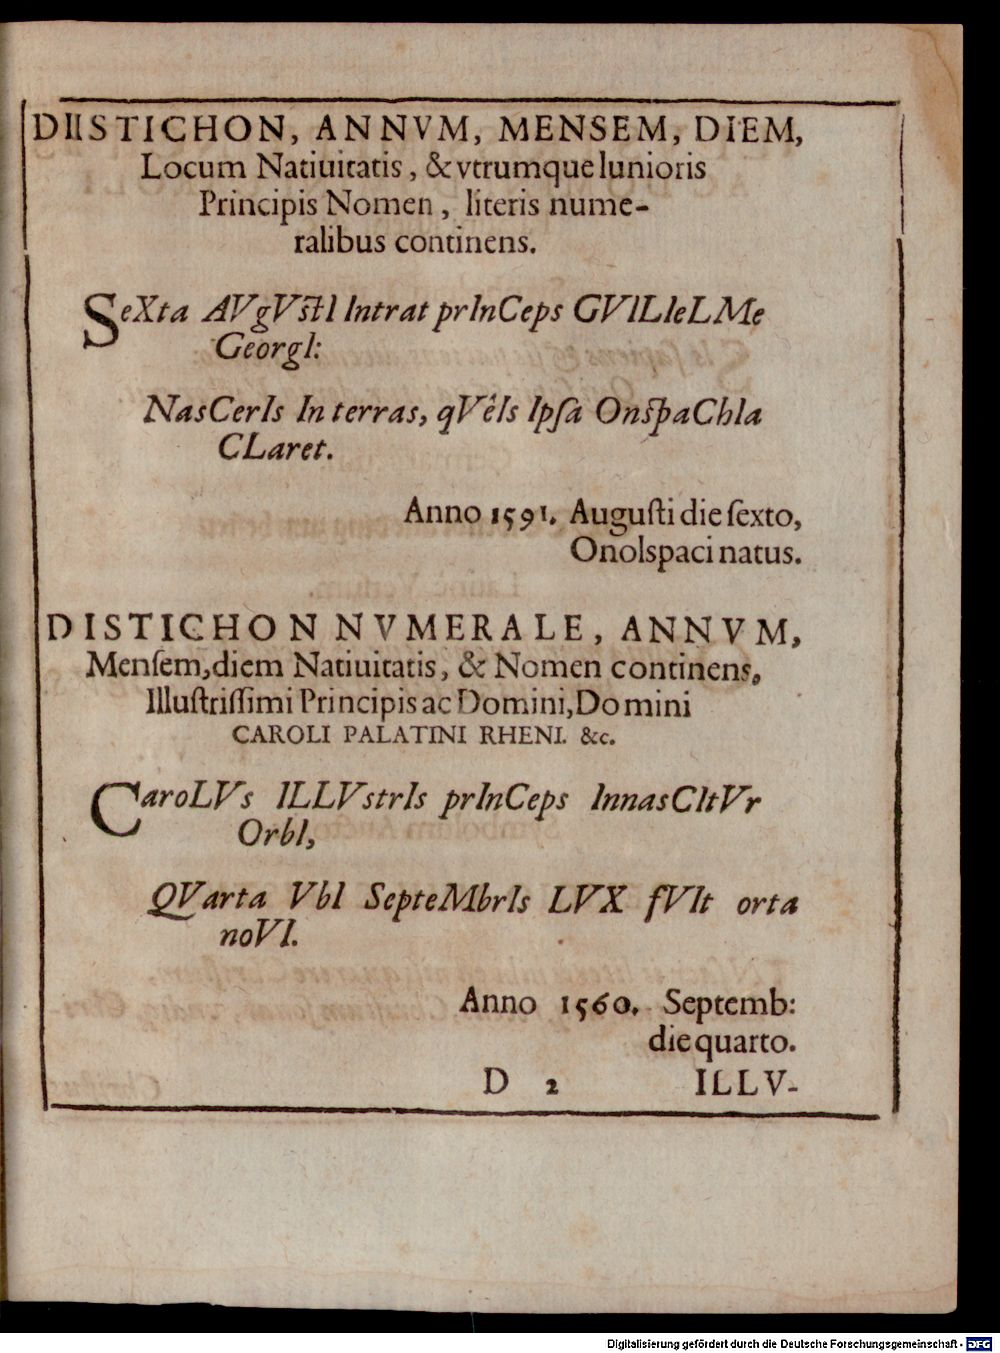 DIISTICHON, ANNVM, MENSEM, DIEM,
Locum Natiuitatis, & vtrumque Iunioris
Principis Nomen, literis nume-
ralibus continens.
SeXta AVgVſtI Intrat prInCeps GVILIeLMe
GeorgI:
NasCerIs In terras, qVêIs Ipſa OnſpaChIa
CLaret.
Anno 1591. Auguſti die ſexto,
Onolspaci natus.
DISTICHON NVMERALE, ANNVM,
Menſem, diem Natiuitatis, & Nomen continens,
Illuſtriſſimi Principis ac Domini, Domini
CAROLI PALATINI RHENI. &c.
CaroLVs ILLVstrIs prInCeps InnasCItVr
OrbI,
QVarta VbI SepteMbrIs LVX fVIt orta
noVI.
Anno 1560. Septemb:
die quarto.
D 2 ILLV-
Digitalisierung gefördert durch die Deutsche Forschungsgemeinschaft - DFG